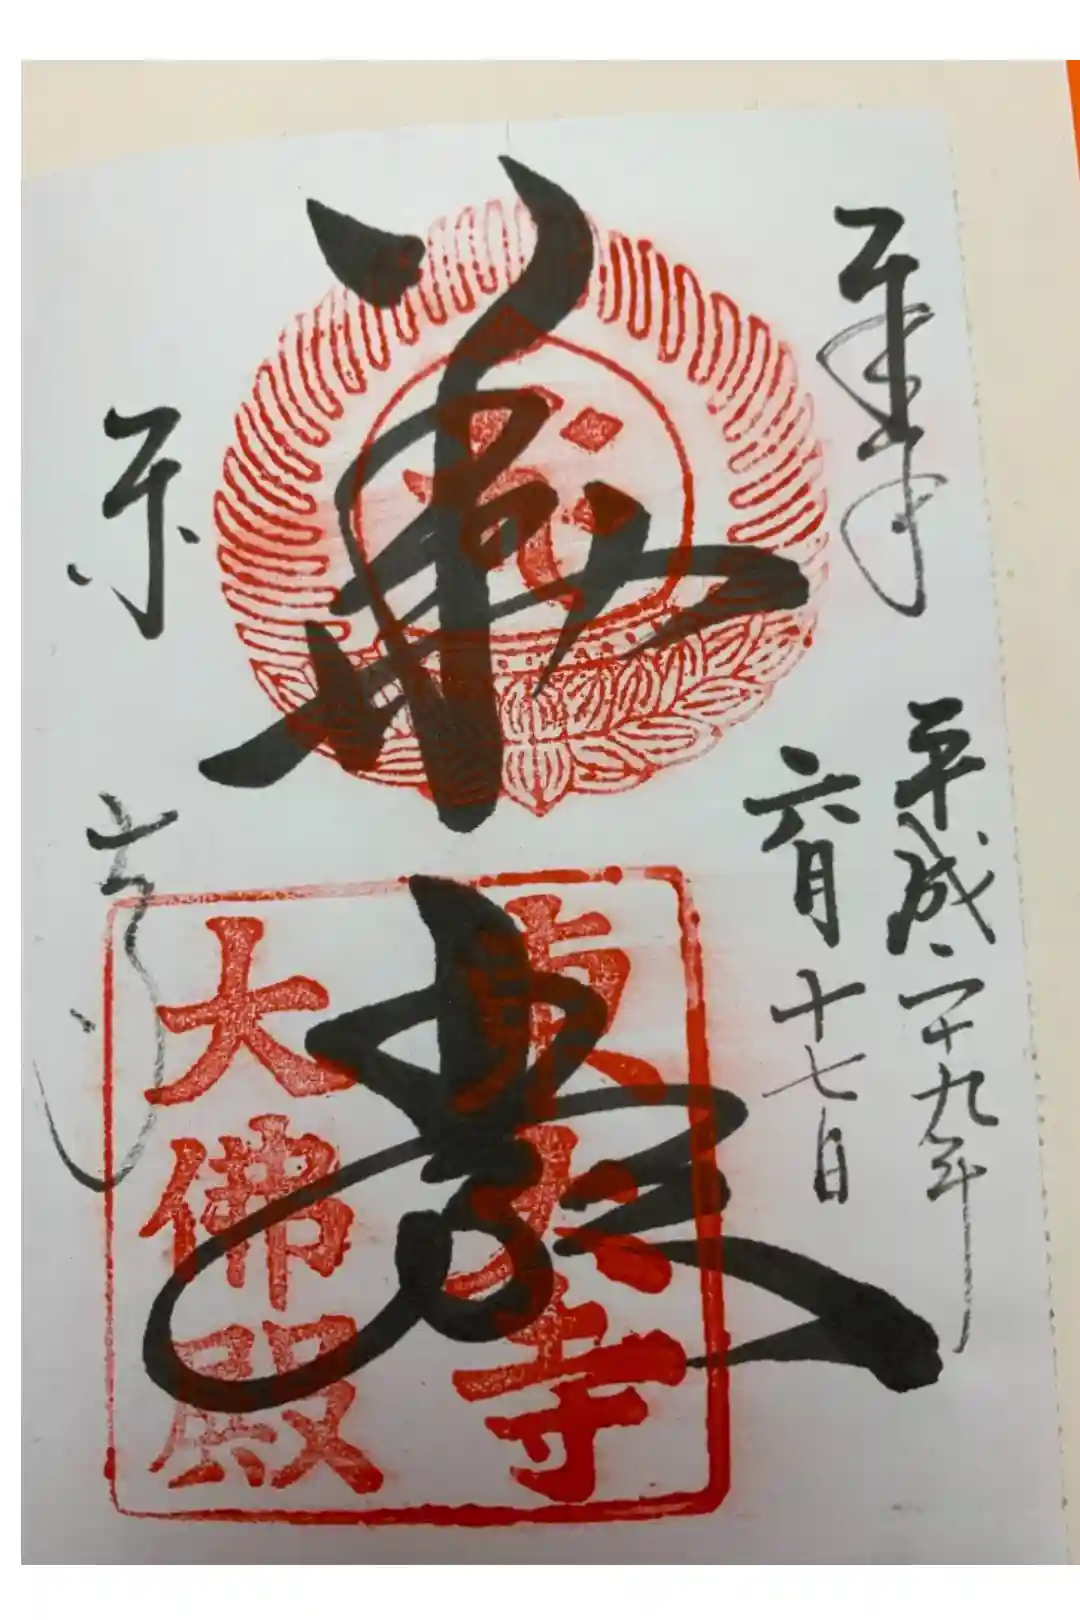 奉拝
平成二十九年
六月十七日
華嚴
東大寺
大佛殿
東大寺